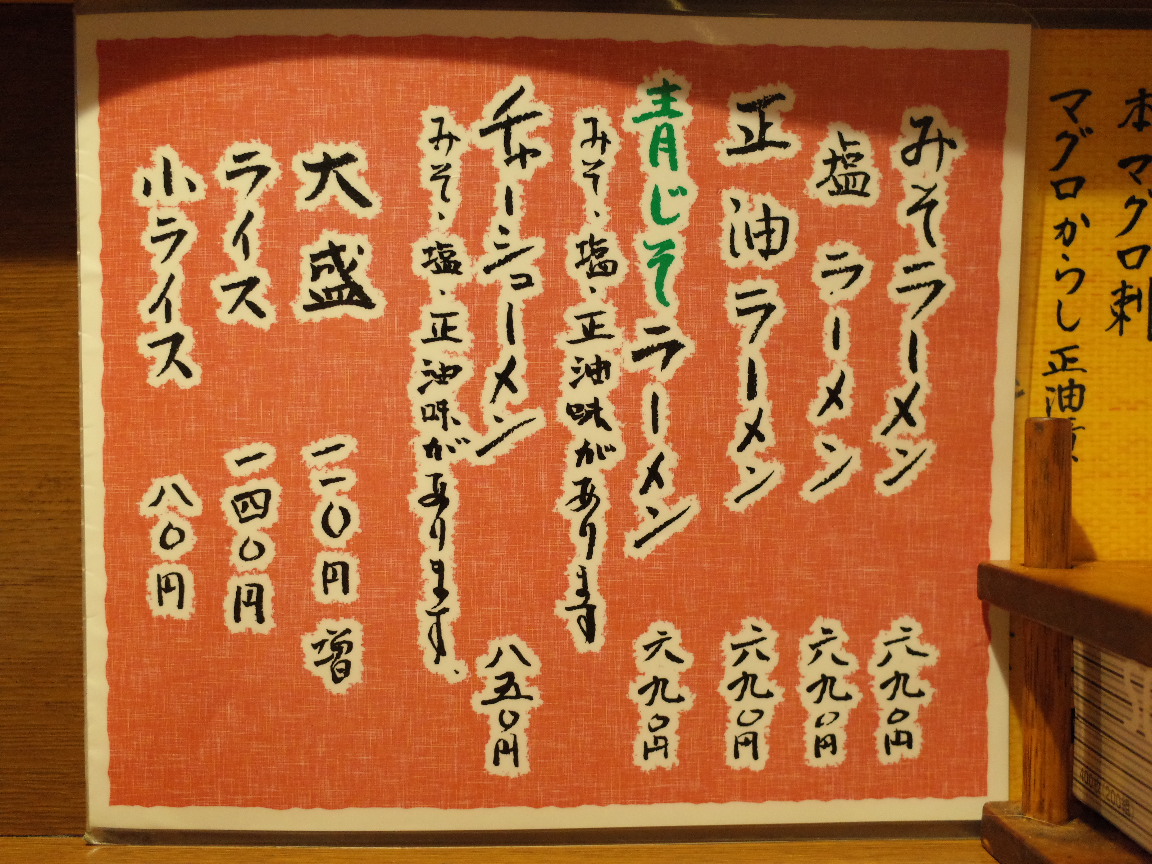 本マグロ刺
マグロからし正油
みそラーメン 六九〇円
塩ラーメン 六九〇円
正油ラーメン 六九〇円
青じそラーメン 六九〇円
みそ・塩・正油味があります
チャーシューメン 八五〇円
みそ・塩・正油味があります.
大盛 一一〇円増
ライス 一四〇円
小ライス 八〇円